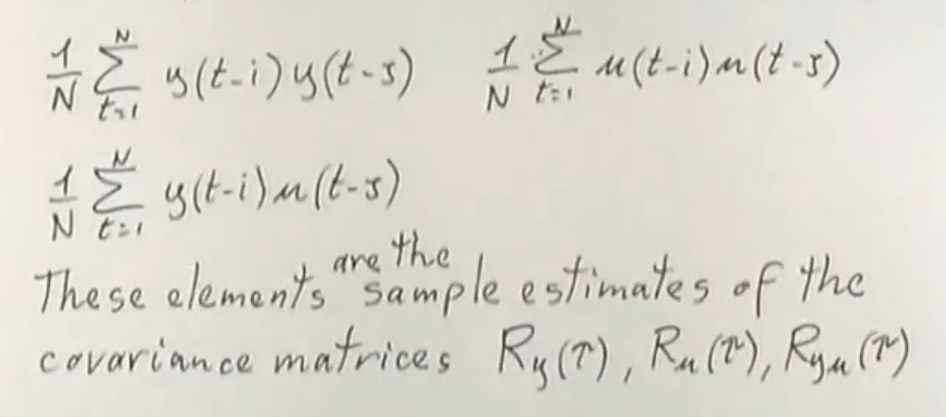 1/N Σ_{t=1}^{N} y(t-i) y(t-s)    1/N Σ_{t=1}^{N} u(t-i) u(t-s)
1/N Σ_{t=1}^{N} y(t-i) u(t-s)
These elements are the sample estimates of the
covariance matrices R_y(τ), R_u(τ), R_yu(τ)